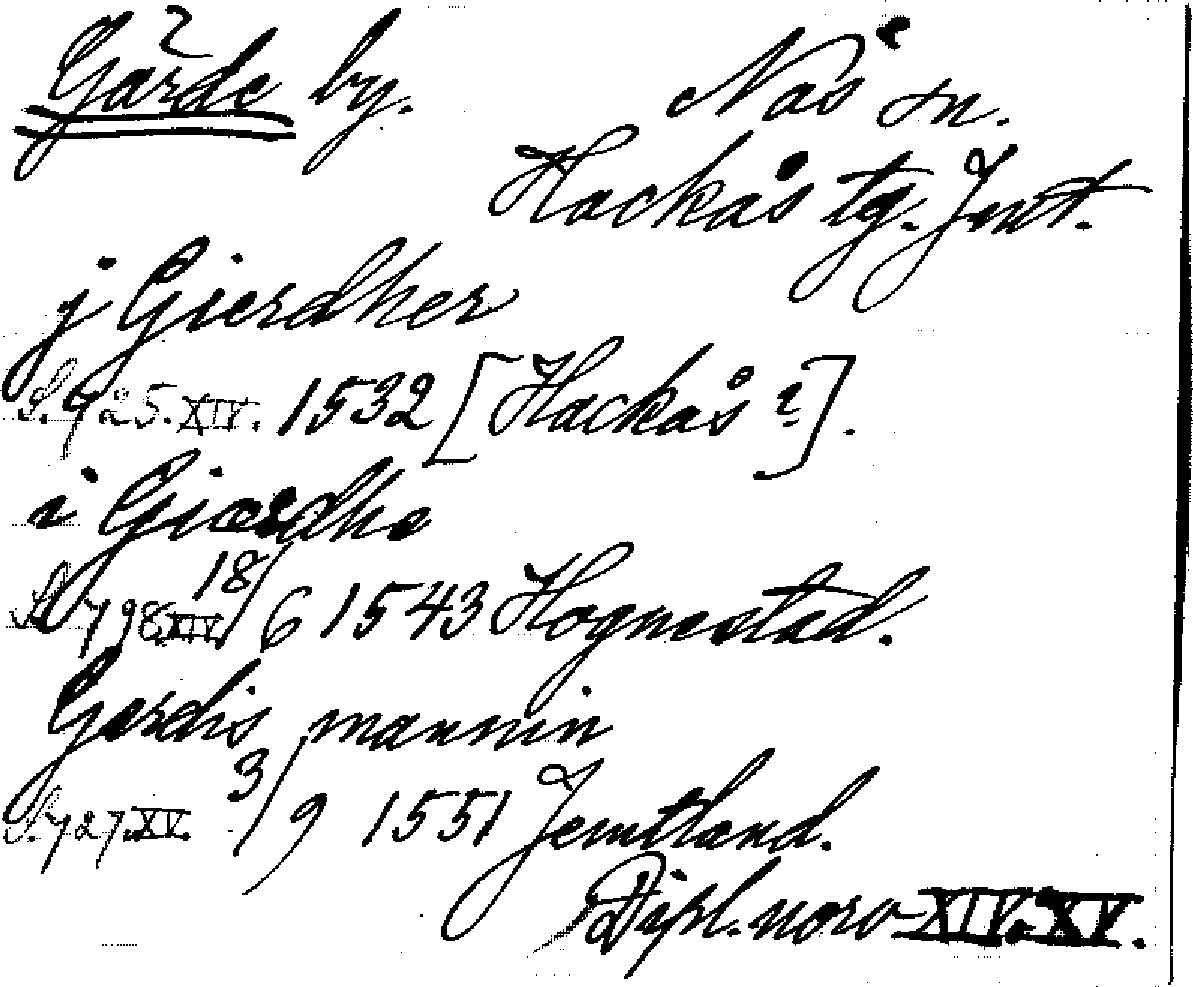 Gärde by. Näs sn.
Hackås tg. Jmt.
j Gierdher
S. 725. XIV. 1532 [Hackås?].
i Giærdhe
S. 798 XIV. 18/6 1543 Hognestad.
Gerdis mannin
S. 727. XV. 3/9 1551 Jemtland.
Dipl. norv XIV. XV.